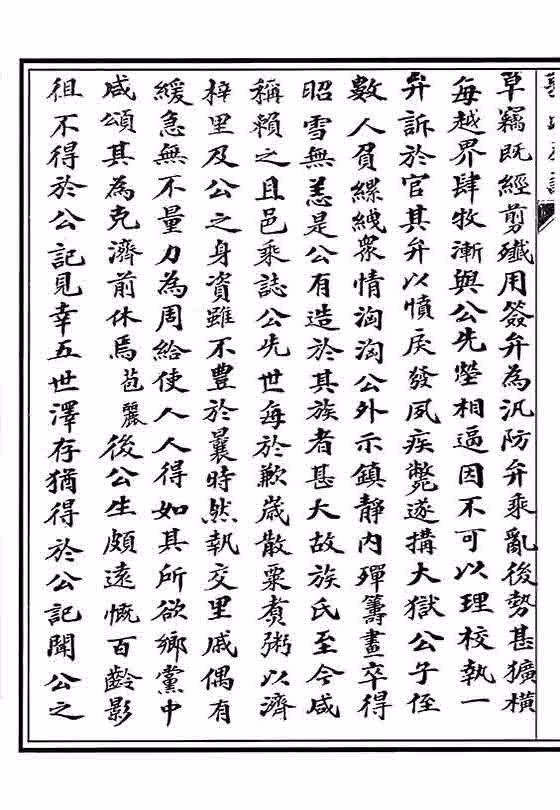 草竊既經剪殱用簽弁為汛防弁乘亂後勢甚獷橫
每越界肆牧漸與公先塋相逼因不可以理校執一
弁訴於官其弁以憤戾發夙疾斃遂搆大獄公子侄
數人頁縲絏衆情洶洶公外示鎮靜內殫籌畫卒得
昭雪無恙是公有造於其族者甚大故族氏至今咸
稱賴之且邑乘誌公先世每於歉歲散粟煑粥以濟
梓里及公之身資雖不豊於曩時然執交里戚偶有
緩急無不量力為周給使人人得如其所欲鄉黨中
咸頌其為克濟前休焉苞麗後公生頗遠慨百齡影
徂不得於公記見幸五世澤存猶得於公記聞公之